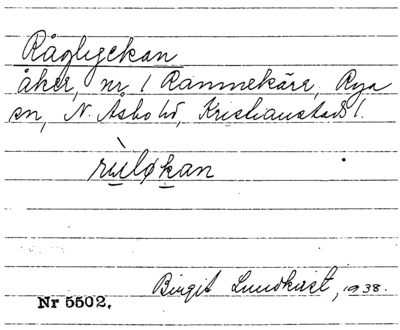 Råglyckan
åker, nr 1 Rammekärr, Rya
sn, N. Åsbo hd, Kristianstads l.
rùløkan
Birgit Lundkvist, 1938.
Nr 5502.